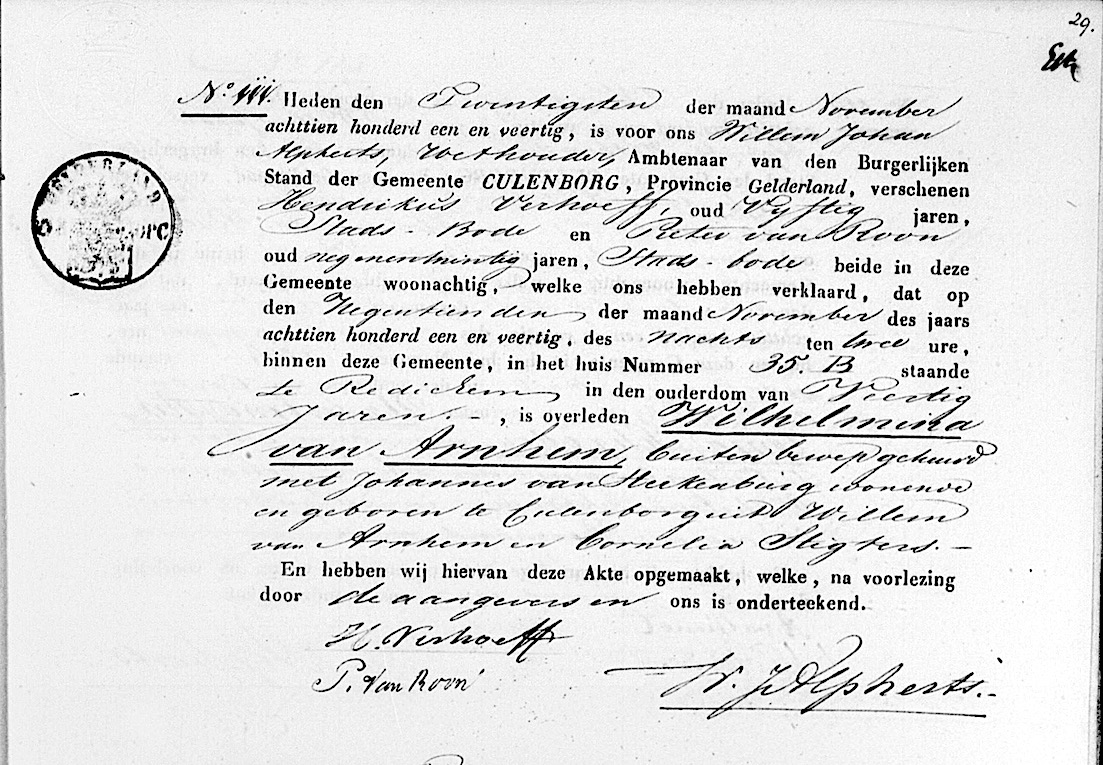 29.
No. 111. Heden den Twintigsten der maand November
achttien honderd een en veertig, is voor ons Willem Johan
Alpherts, Wethouder, Ambtenaar van den Burgerlijken
Stand der Gemeente CULENBORG, Provincie Gelderland, verschenen
Hendrikus Verhoeff, oud Vyftig jaren,
Stads-Bode en Pieter van Roon
oud negenentwintig jaren, Stads-bode beide in deze
Gemeente woonachtig, welke ons hebben verklaard, dat op
den Negentienden der maand November des jaars
achttien honderd een en veertig, des nachts ten twee ure,
binnen deze Gemeente, in het huis Nummer 35. B staande
te Redichem in den ouderdom van Veertig
Jaren -, is overleden Wilhelmina
van Arnhem, buiten beroep gehuwd
met Johannes van Heekenburg wonende
en geboren te Culenborg uit Willem
van Arnhem en Cornelia Sligters. -
En hebben wij hiervan deze Akte opgemaakt, welke, na voorlezing
door de aangevers en ons is onderteekend.
H. Verhoeff
P. Van Roon
W. J. Alpherts.